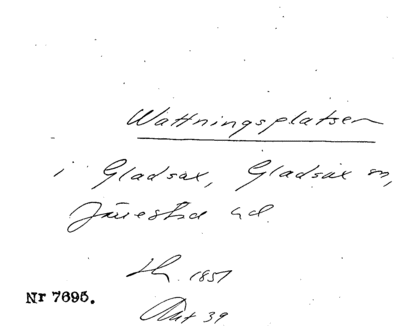 Wattningsplatsen
i Gladsax, Gladsax sn,
Järrestad hd.
1851
Nr 7695.
Akt 39